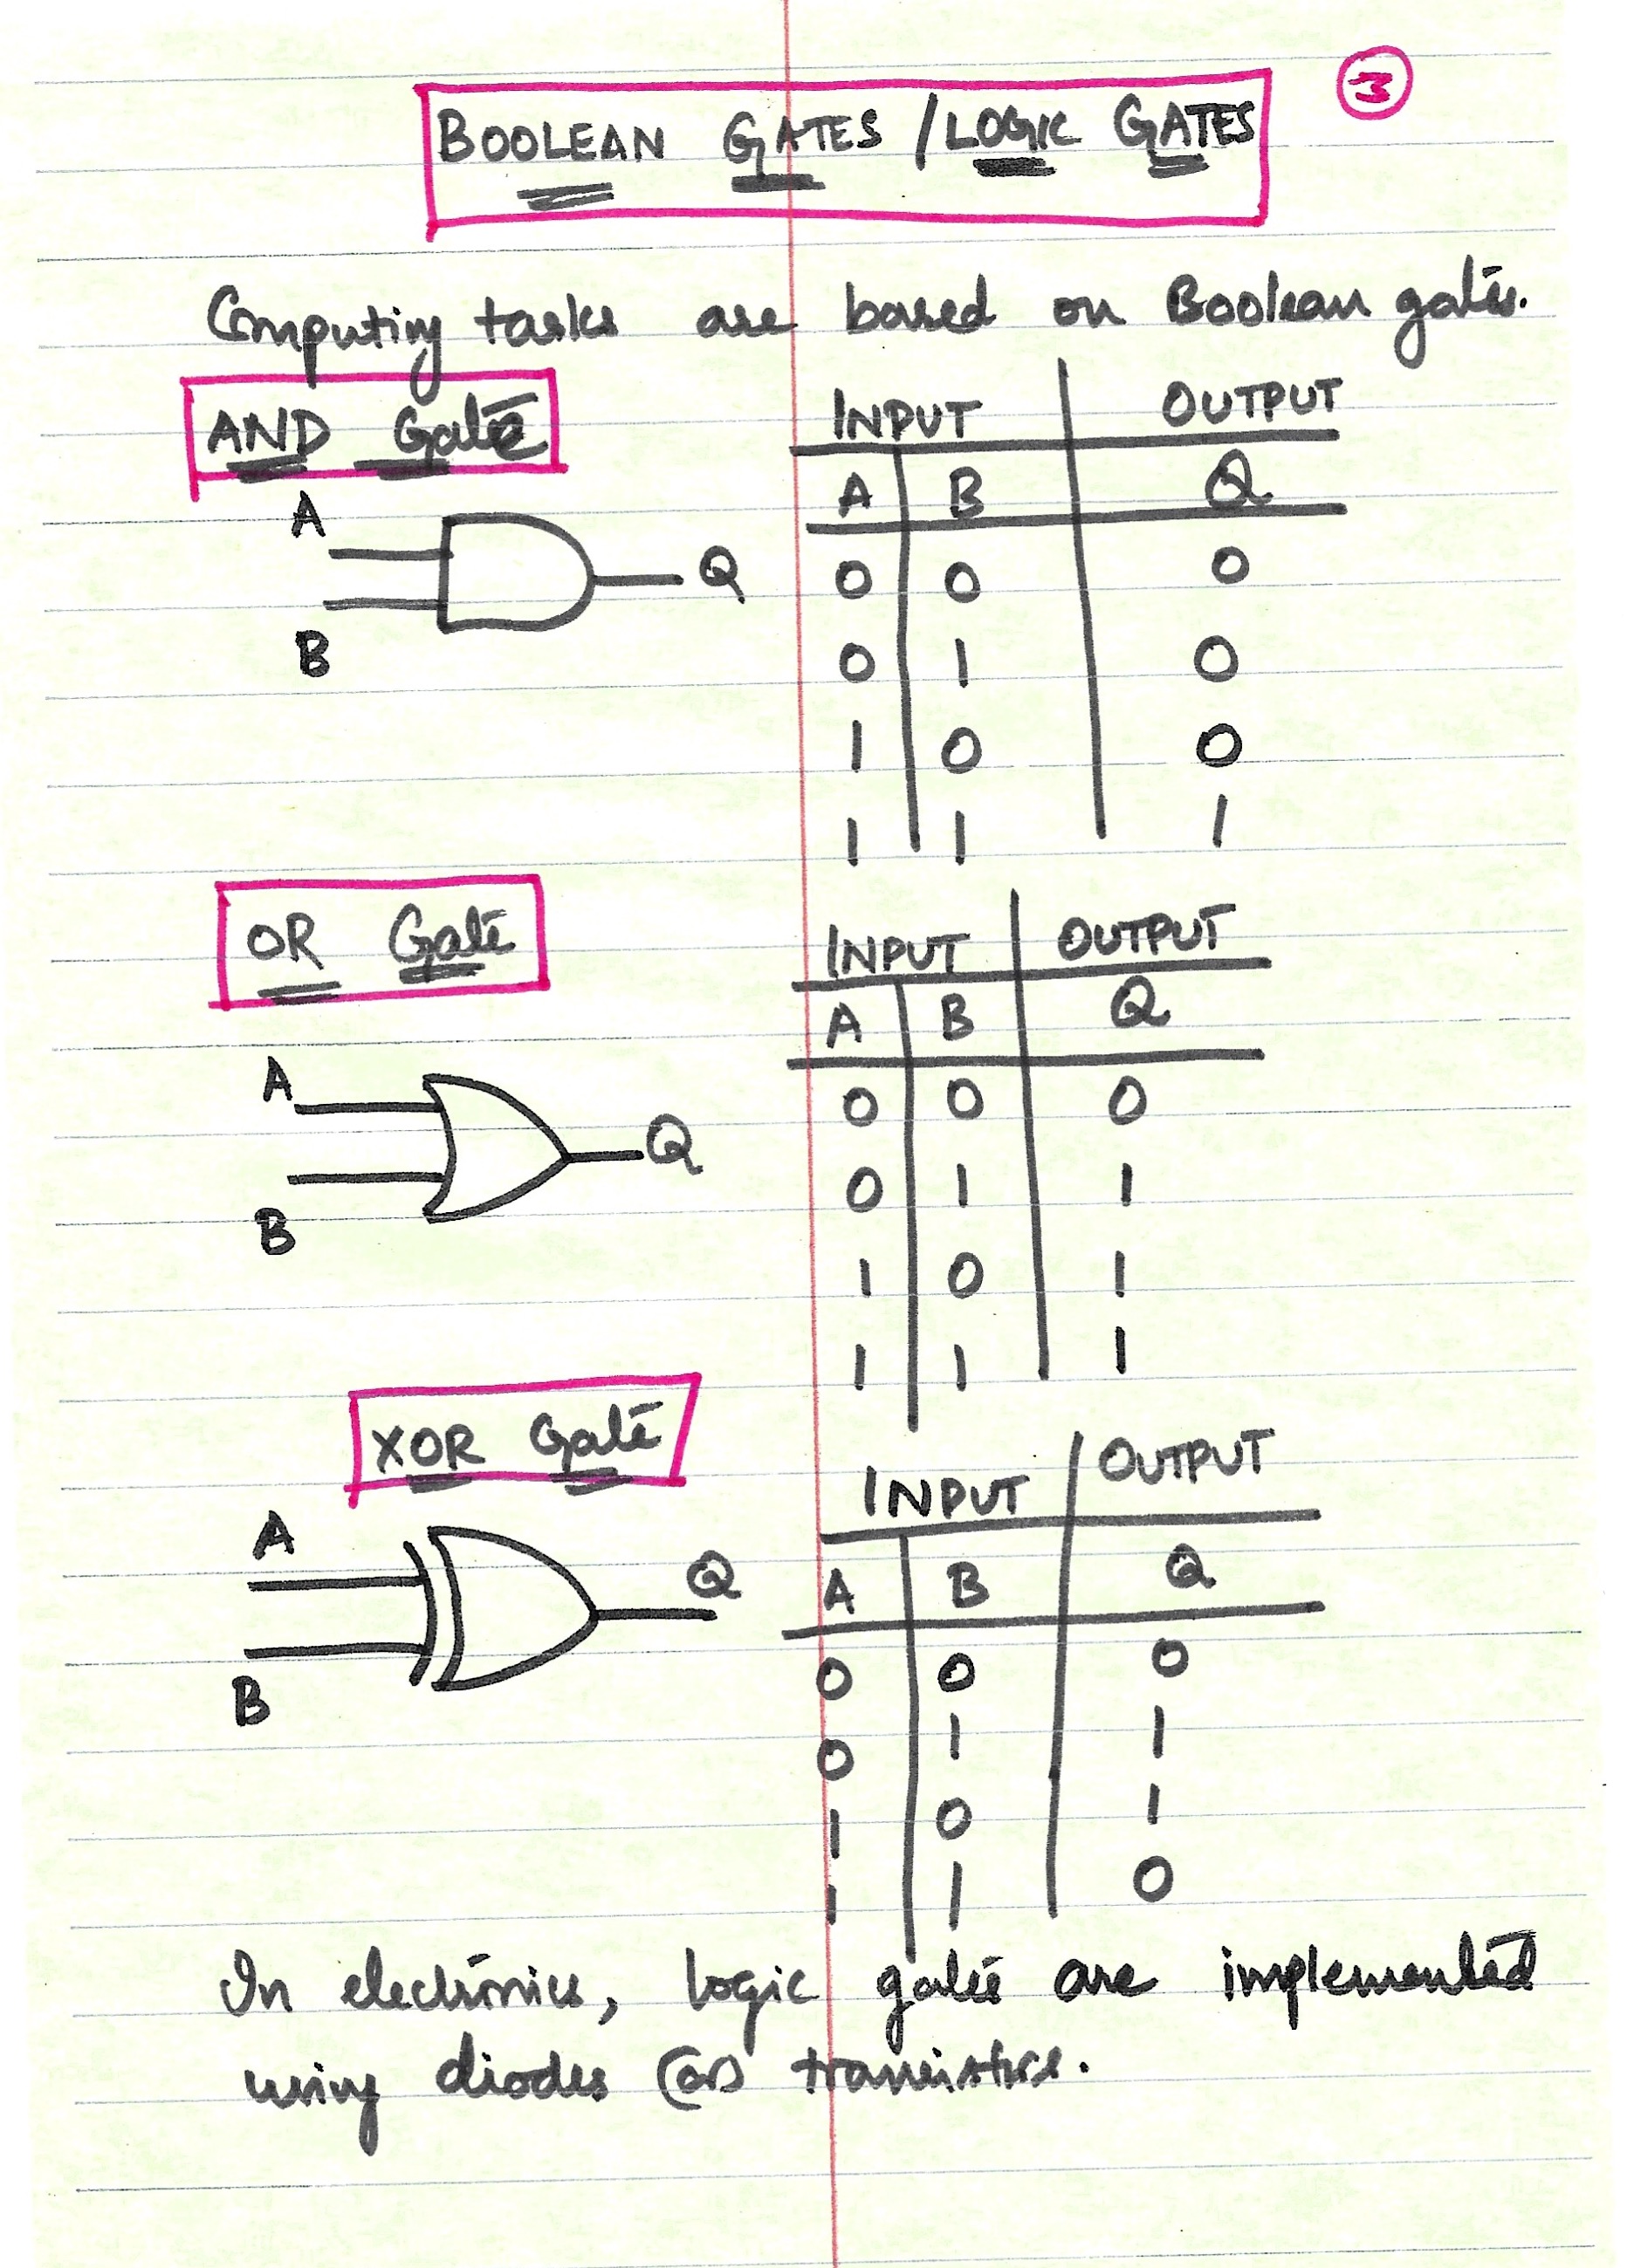 3
BOOLEAN GATES / LOGIC GATES
Computing tasks are based on Boolean gates.
AND Gate
A
B
Q
INPUT OUTPUT
A B Q
0 0 0
0 1 0
1 0 0
1 1 1
OR Gate
A
B
Q
INPUT OUTPUT
A B Q
0 0 0
0 1 1
1 0 1
1 1 1
XOR Gate
A
B
Q
INPUT OUTPUT
A B Q
0 0 0
0 1 1
1 0 1
1 1 0
In electronics, logic gates are implemented
using diodes (or) transistors.